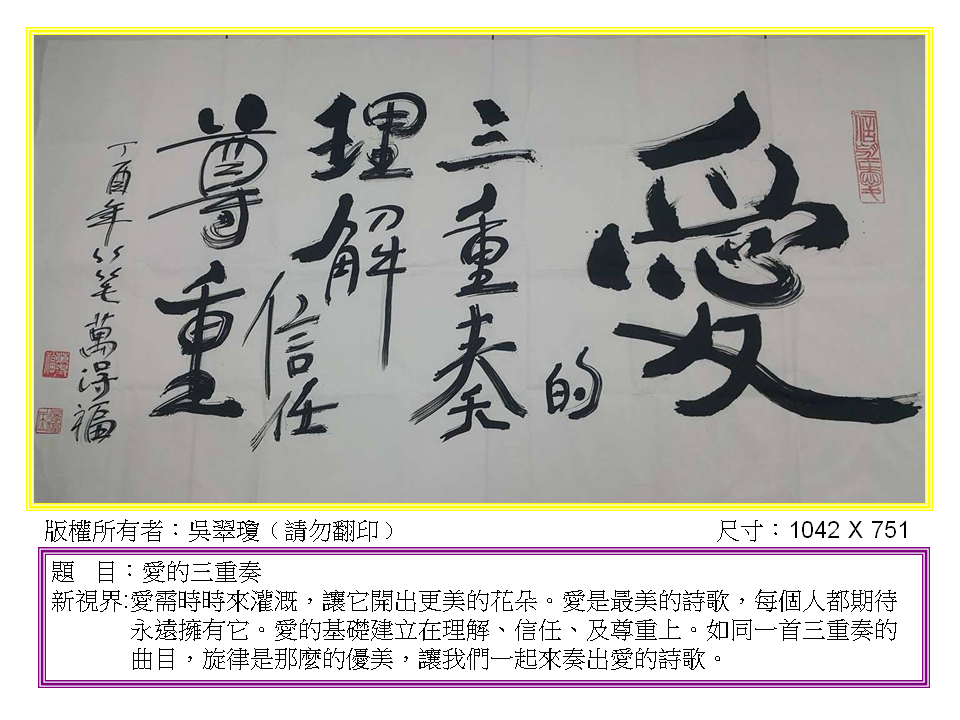 愛的
三重奏
理解
信任
尊重
丁酉年 竹笔 萬得福
版權所有者：吳翠瓊（請勿翻印）
尺寸：1042 X 751
題　目：愛的三重奏
新視界:愛需時時來灌溉，讓它開出更美的花朵。愛是最美的詩歌，每個人都期待
永遠擁有它。愛的基礎建立在理解、信任、及尊重上。如同一首三重奏的
曲目，旋律是那麼的優美，讓我們一起來奏出愛的詩歌。